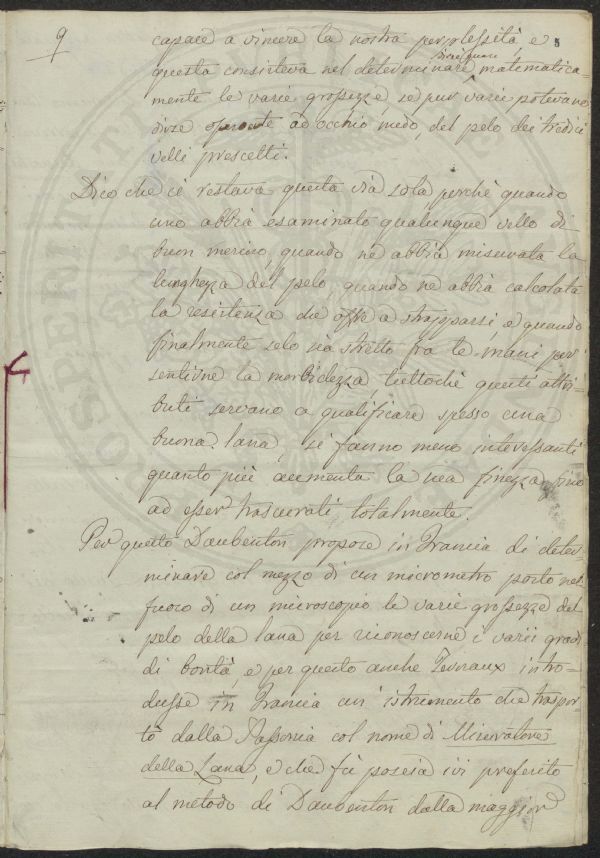 9
capace a vincere la nostra perplessità, e 5
questa consisteva nel determinare matematica-
mente le varie grossezze, se pur varie potevano
dirse ad occhio nudo, del pelo dei tredici
velli prescelti.
Dico che ci restava questa via sola perchè quando
uno abbia esaminato qualunque vello di
buon merino, quando ne abbia misurata la
lunghezza del pelo, quando ne abbia calcolata
la resistenza che offre a strapparsi, e quando
finalmente selo sia stretto fra le mani per
sentirne la morbidezza, tuttochè questi attri-
buti servano a qualificare spesso una
buona lana, si fanno meno interessanti
quanto più aumenta la sua finezza, fino
ad esser trascurati totalmente.
Per questo Daubenton propose in Francia di deter-
minare col mezzo di un micrometro posto nel
fuoco di un microscopio le varie grossezze del
pelo della lana per riconoscerne i varii gradi
di bontà, e per questo anche Ternaux intro-
dusse in Francia un istrumento che traspor-
tò dalla Sassonia col nome di Misuratore
della Lana, e che fù poscia ivi preferito
al metodo di Daubenton dalla maggior